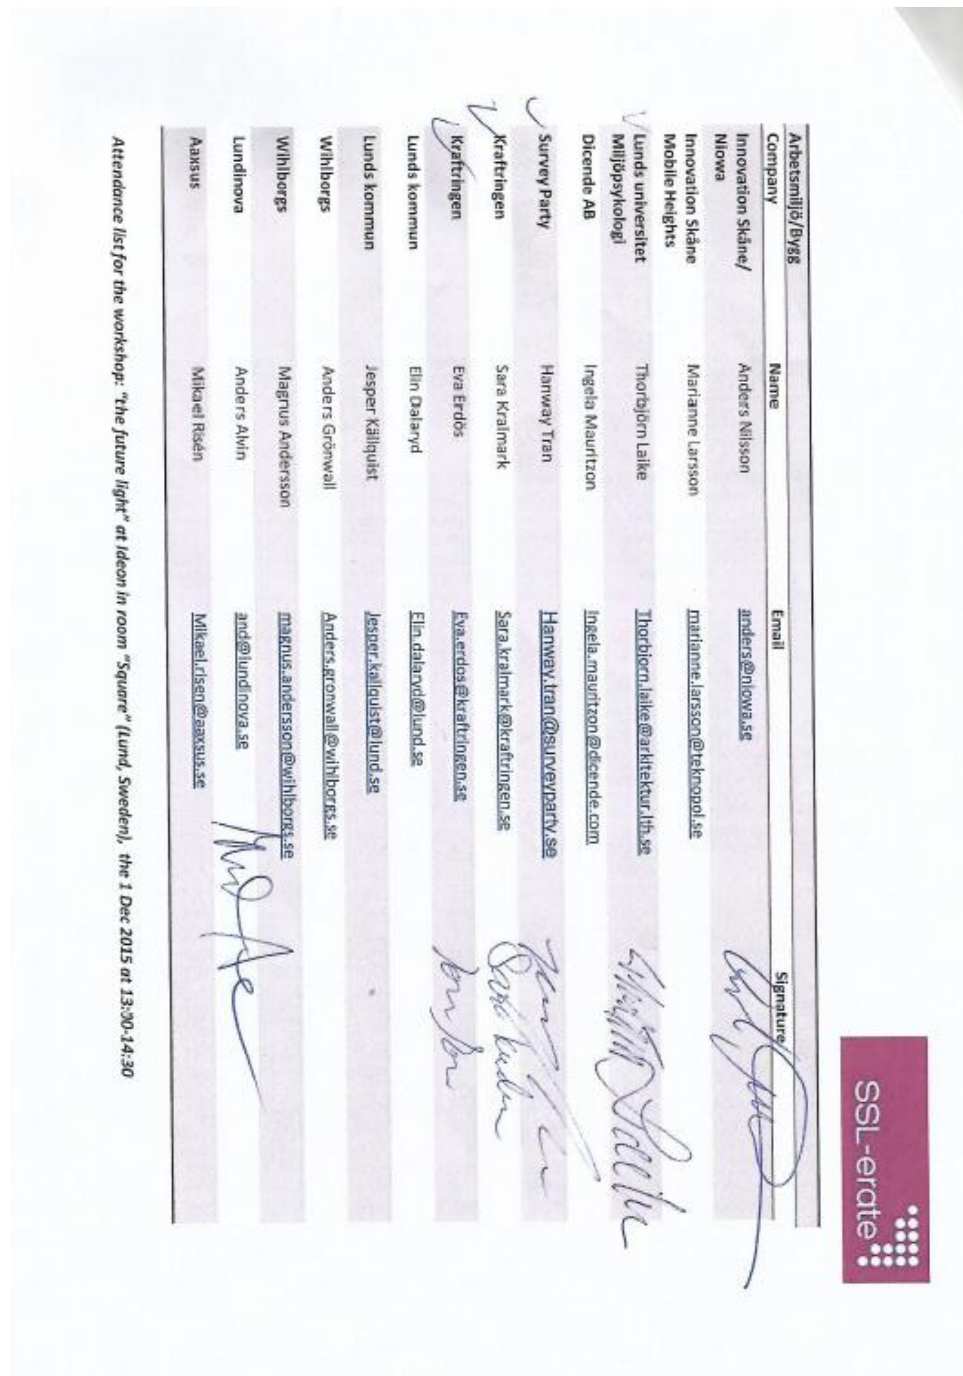 SSL-erate
Arbetsmiljö/Bygg
Company Name Email Signature
Innovation Skåne/ Anders Nilsson anders@niowa.se
Niowa
Innovation Skåne Marianne Larsson marianne.larsson@teknopol.se
Mobile Heights
Lunds universitet Thorbjörn Laike Thorbiorn.laike@arkitektur.lth.se
Miljöpsykologi
Dicende AB Ingela Mauritzon Ingela.mauritzon@dicende.com
Survey Party Hanway Tran Hanway.tran@surveyparty.se
Kraftringen Sara Kralmark Sara.kralmark@kraftringen.se
Kraftringen Eva Erdös Eva.erdos@kraftringen.se
Lunds kommun Elin Dalaryd Elin.dalaryd@lund.se
Lunds kommun Jesper Källquist Jesper.kallquist@lund.se
Wihlborgs Anders Grönwall Anders.gronwall@wihlborgs.se
Wihlborgs Magnus Andersson magnus.andersson@wihlborgs.se
Lundinova Anders Alvin and@lundinova.se
Aaxsus Mikael Risén Mikael.risen@aaxsus.se
Attendance list for the workshop: "the future light" at Ideon in room "Square" (Lund, Sweden), the 1 Dec 2015 at 13:00-14:30